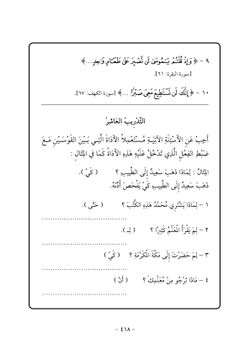 ٩ – ﴿ وَإِذْ قُلْتُمْ يَـٰمُوسَىٰ لَن نَّصْبِرَ عَلَىٰ طَعَامٍ وَاحِدٍ ...﴾
[سورة البقرة: ٦١].
١٠ – ﴿ إِنَّكَ لَن تَسْتَطِيعَ مَعِىَ صَبْرًا ...﴾ [سورة الكهف: ٦٧].
التَّدْرِيبُ الْعَاشِرُ
أَجِبْ عَنِ الْأَسْئِلَةِ الْآتِيَةِ مُسْتَعْمِلاً الْأَدَاةَ الَّتِي بَيْنَ الْقَوْسَيْنِ مَعَ
ضَبْطِ الْفِعْلِ الَّذِي تَدْخُلُ عَلَيْهِ هَذِهِ الْأَدَاةُ كَمَا فِي الْمِثَالِ :
الْمِثَالُ : لِمَاذَا ذَهَبَ سَعِيدٌ إِلَى الطَّبِيبِ ؟ ( كَيْ ).
ذَهَبَ سَعِيدٌ إِلَى الطَّبِيبِ كَيْ يَفْحَصَ أُمَّهُ.
١ – لِمَاذَا يَشْتَرِي مُحَمَّدٌ هَذِهِ الْكُتُبَ ؟ ( حَتَّى ).
٢ – لِمَ يَقْرَأُ الْمُعَلِّمُ كَثِيرًا ؟ ( لِـ ).
٣ – لِمَ حَضَرْتَ إِلَى مَكَّةَ الْمُكَرَّمَةِ ؟ ( كَيْ ).
٤ – مَاذَا تَرْجُو مِنْ مُعَلِّمِكَ ؟ ( أَنْ )
– ٤١٨ –